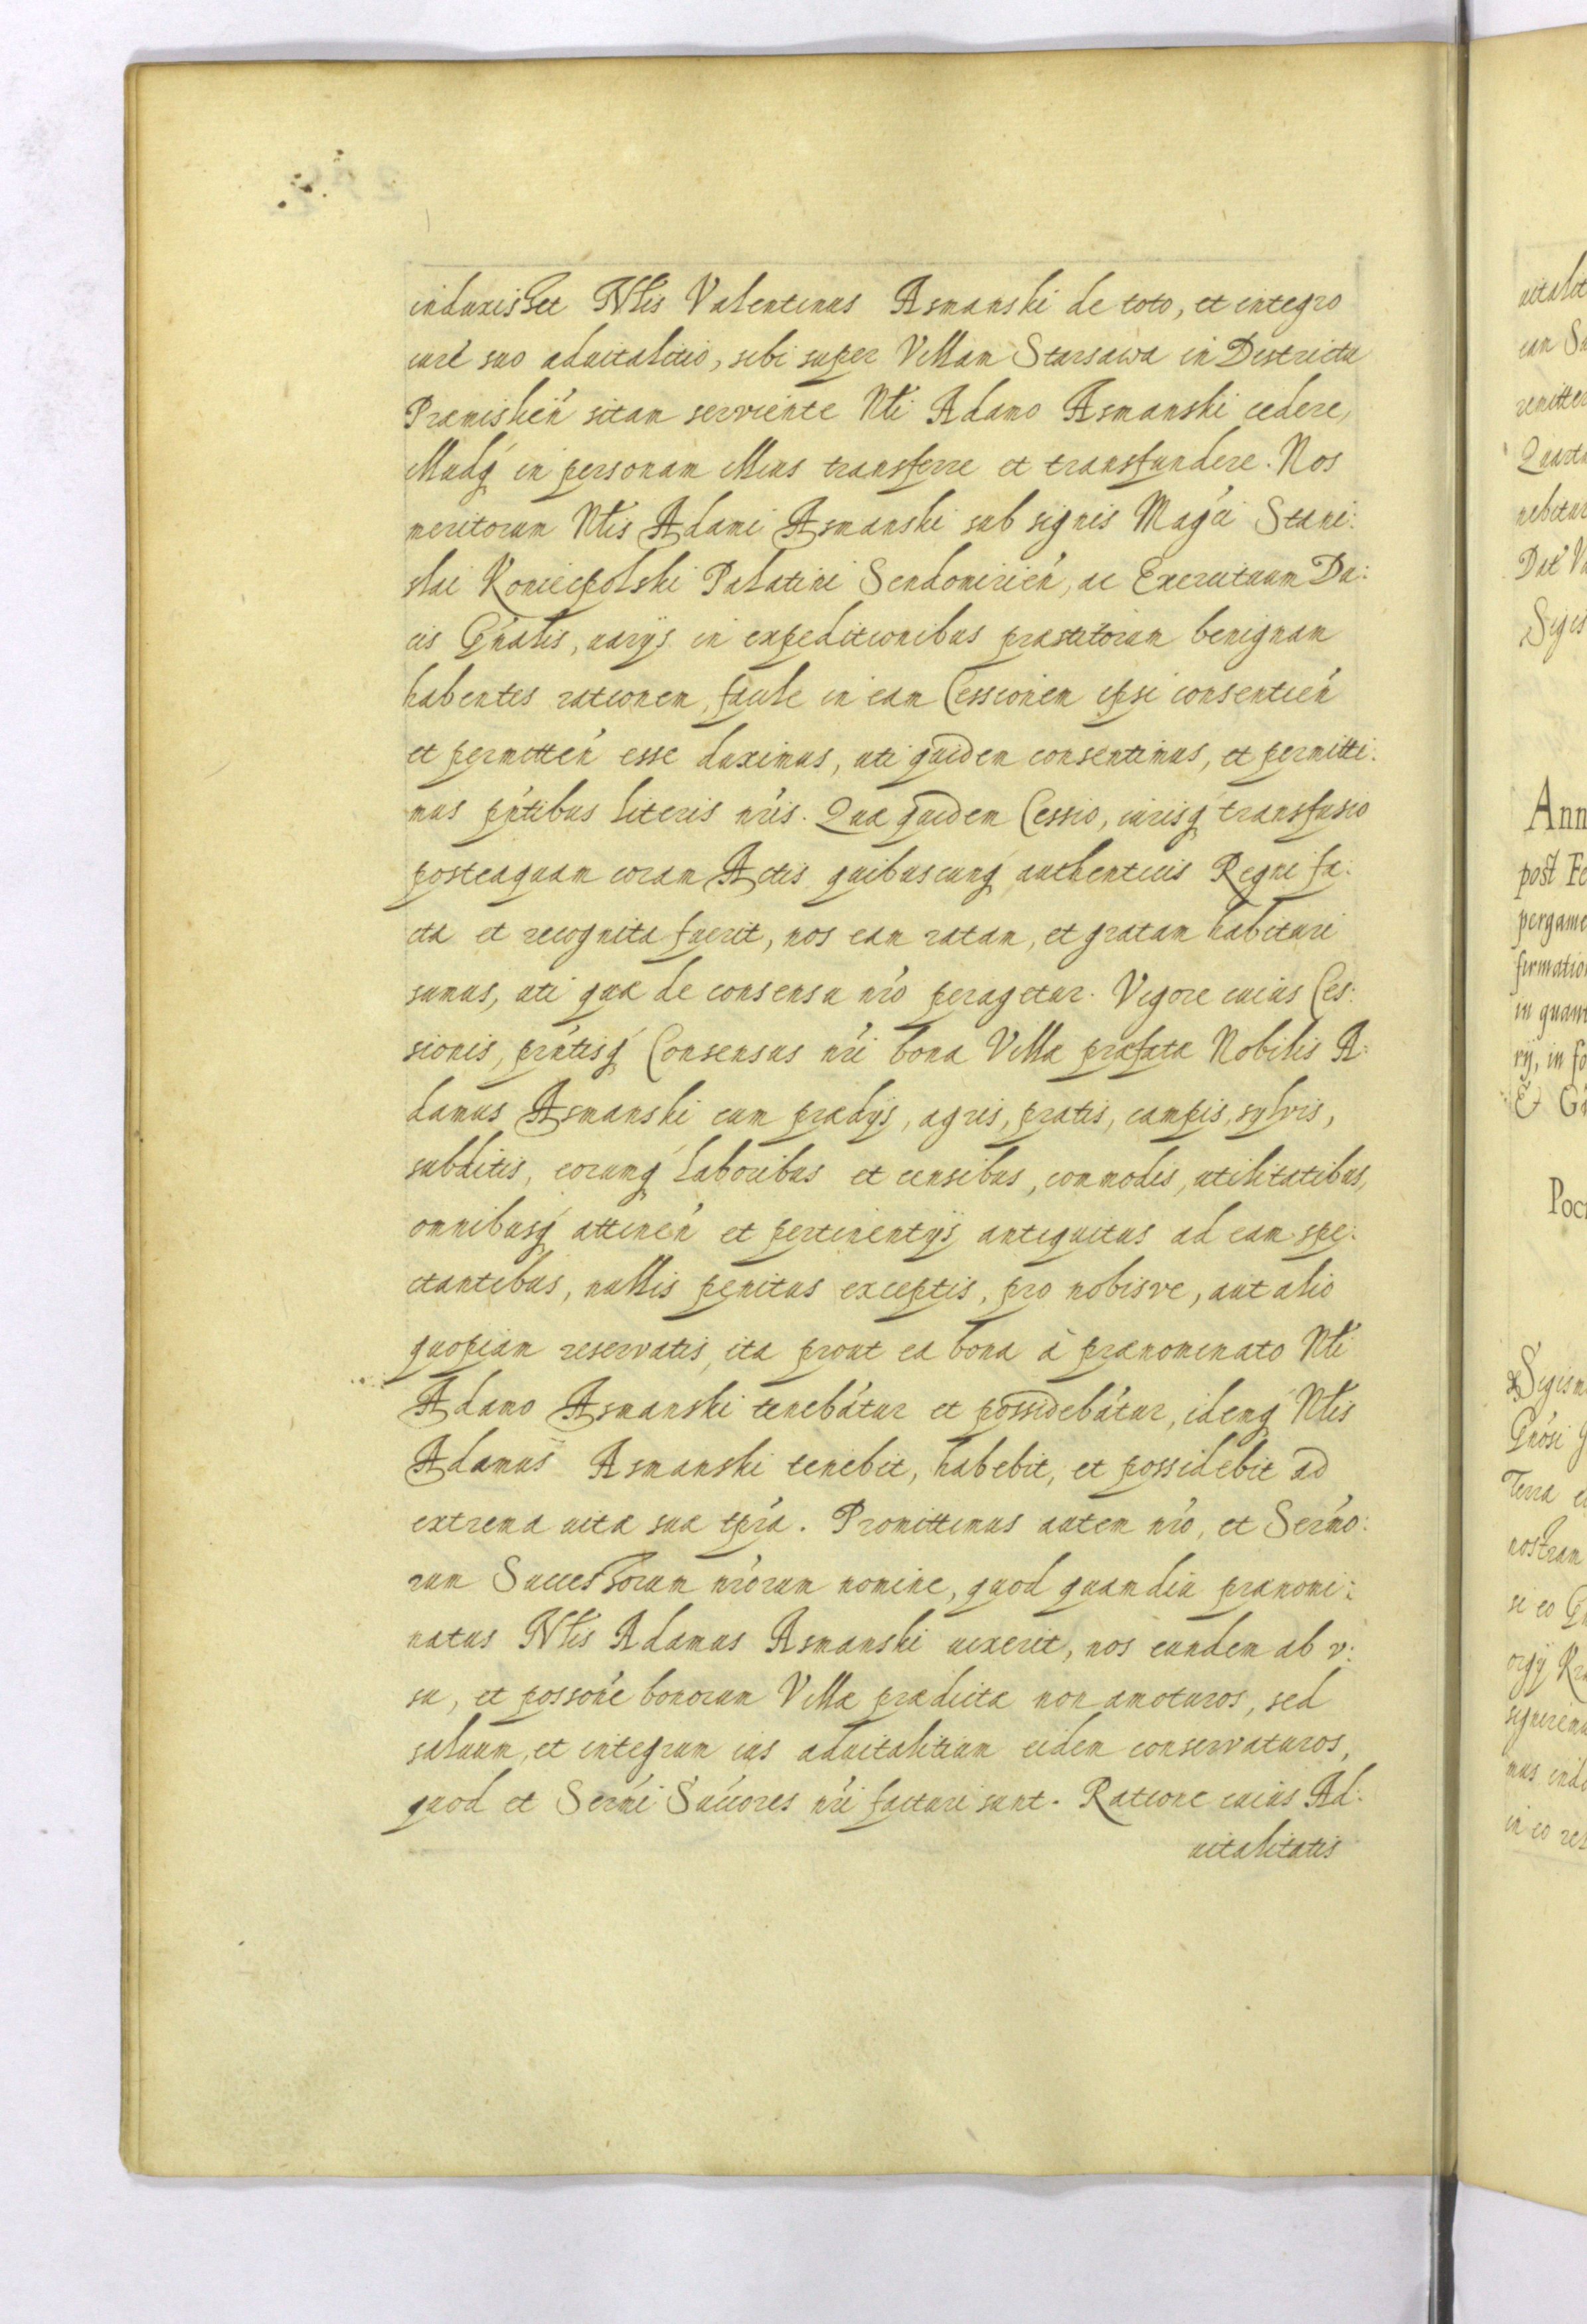 induxisset Nlis Valentinus Asmanski de toto, et integro
iure suo aduitalitio, sibi super Villam Starsawa in Districtu
Præmislień sitam serviente Nli Adamo Asmanski cedere,
illudq́ in personam illius transferre et transfundere. Nos
meritorum Nlis Adami Asmanski sub signis Magći Stani:
slai Koniecpolski Palatini Sendomirień, ac Exercituum Du:
cis Gńalis, uarijs in expeditionibus præstitorum benignam
habentes rationem, facile in eam Cessionem ipsi consentień
et permittеń esse duximus, uti quidem consentimus, et permitti:
mus pńtibus literis nŕis. Quæ quidem Cessio, iurisq́ transfusio
posteaquam coram Actis quibuscunq́ authenticis Regni fa:
cta et recognita fuerit, nos eam ratam, et gratam habituri
sumus, uti quæ de consensu nŕo peragetur. Vigore cuius Ces:
sionis, pńtisq́ Consensus nŕi bona Villæ præfatæ Nobilis A:
damus Asmanski cum prædijs, agris, pratis, campis, sylvis,
subditis, eorumq́ laboribus et censibus, commodis, utilitatibus,
omnibusq́ attineń et pertinentijs antiquitus ad eam spe:
ctantibus, nullis penitus exceptis, pro nobisve, aut alio
quopiam reservatis, ita prout ea bona à prænominato Nli
Adamo Asmanski tenebátur et possidebátur, idemq́ Nlis
Adamus Asmanski tenebit, habebit, et possidebit ad
extrema uitæ suæ tpŕa. Promittimus autem nŕo, et Serḿo:
rum Successorum nŕorum nomine, quod quamdiu prænomi:
natus Nlis Adamus Asmanski uixerit, nos eundem ab v:
su, et possońe bonorum Villæ prædictæ non amoturos, sed
saluum, et integrum ius aduitalitium eidem conservaturos,
quod et Serḿi Sućcores nŕi facturi sunt. Ratione cuius Ad:
uitalitatis